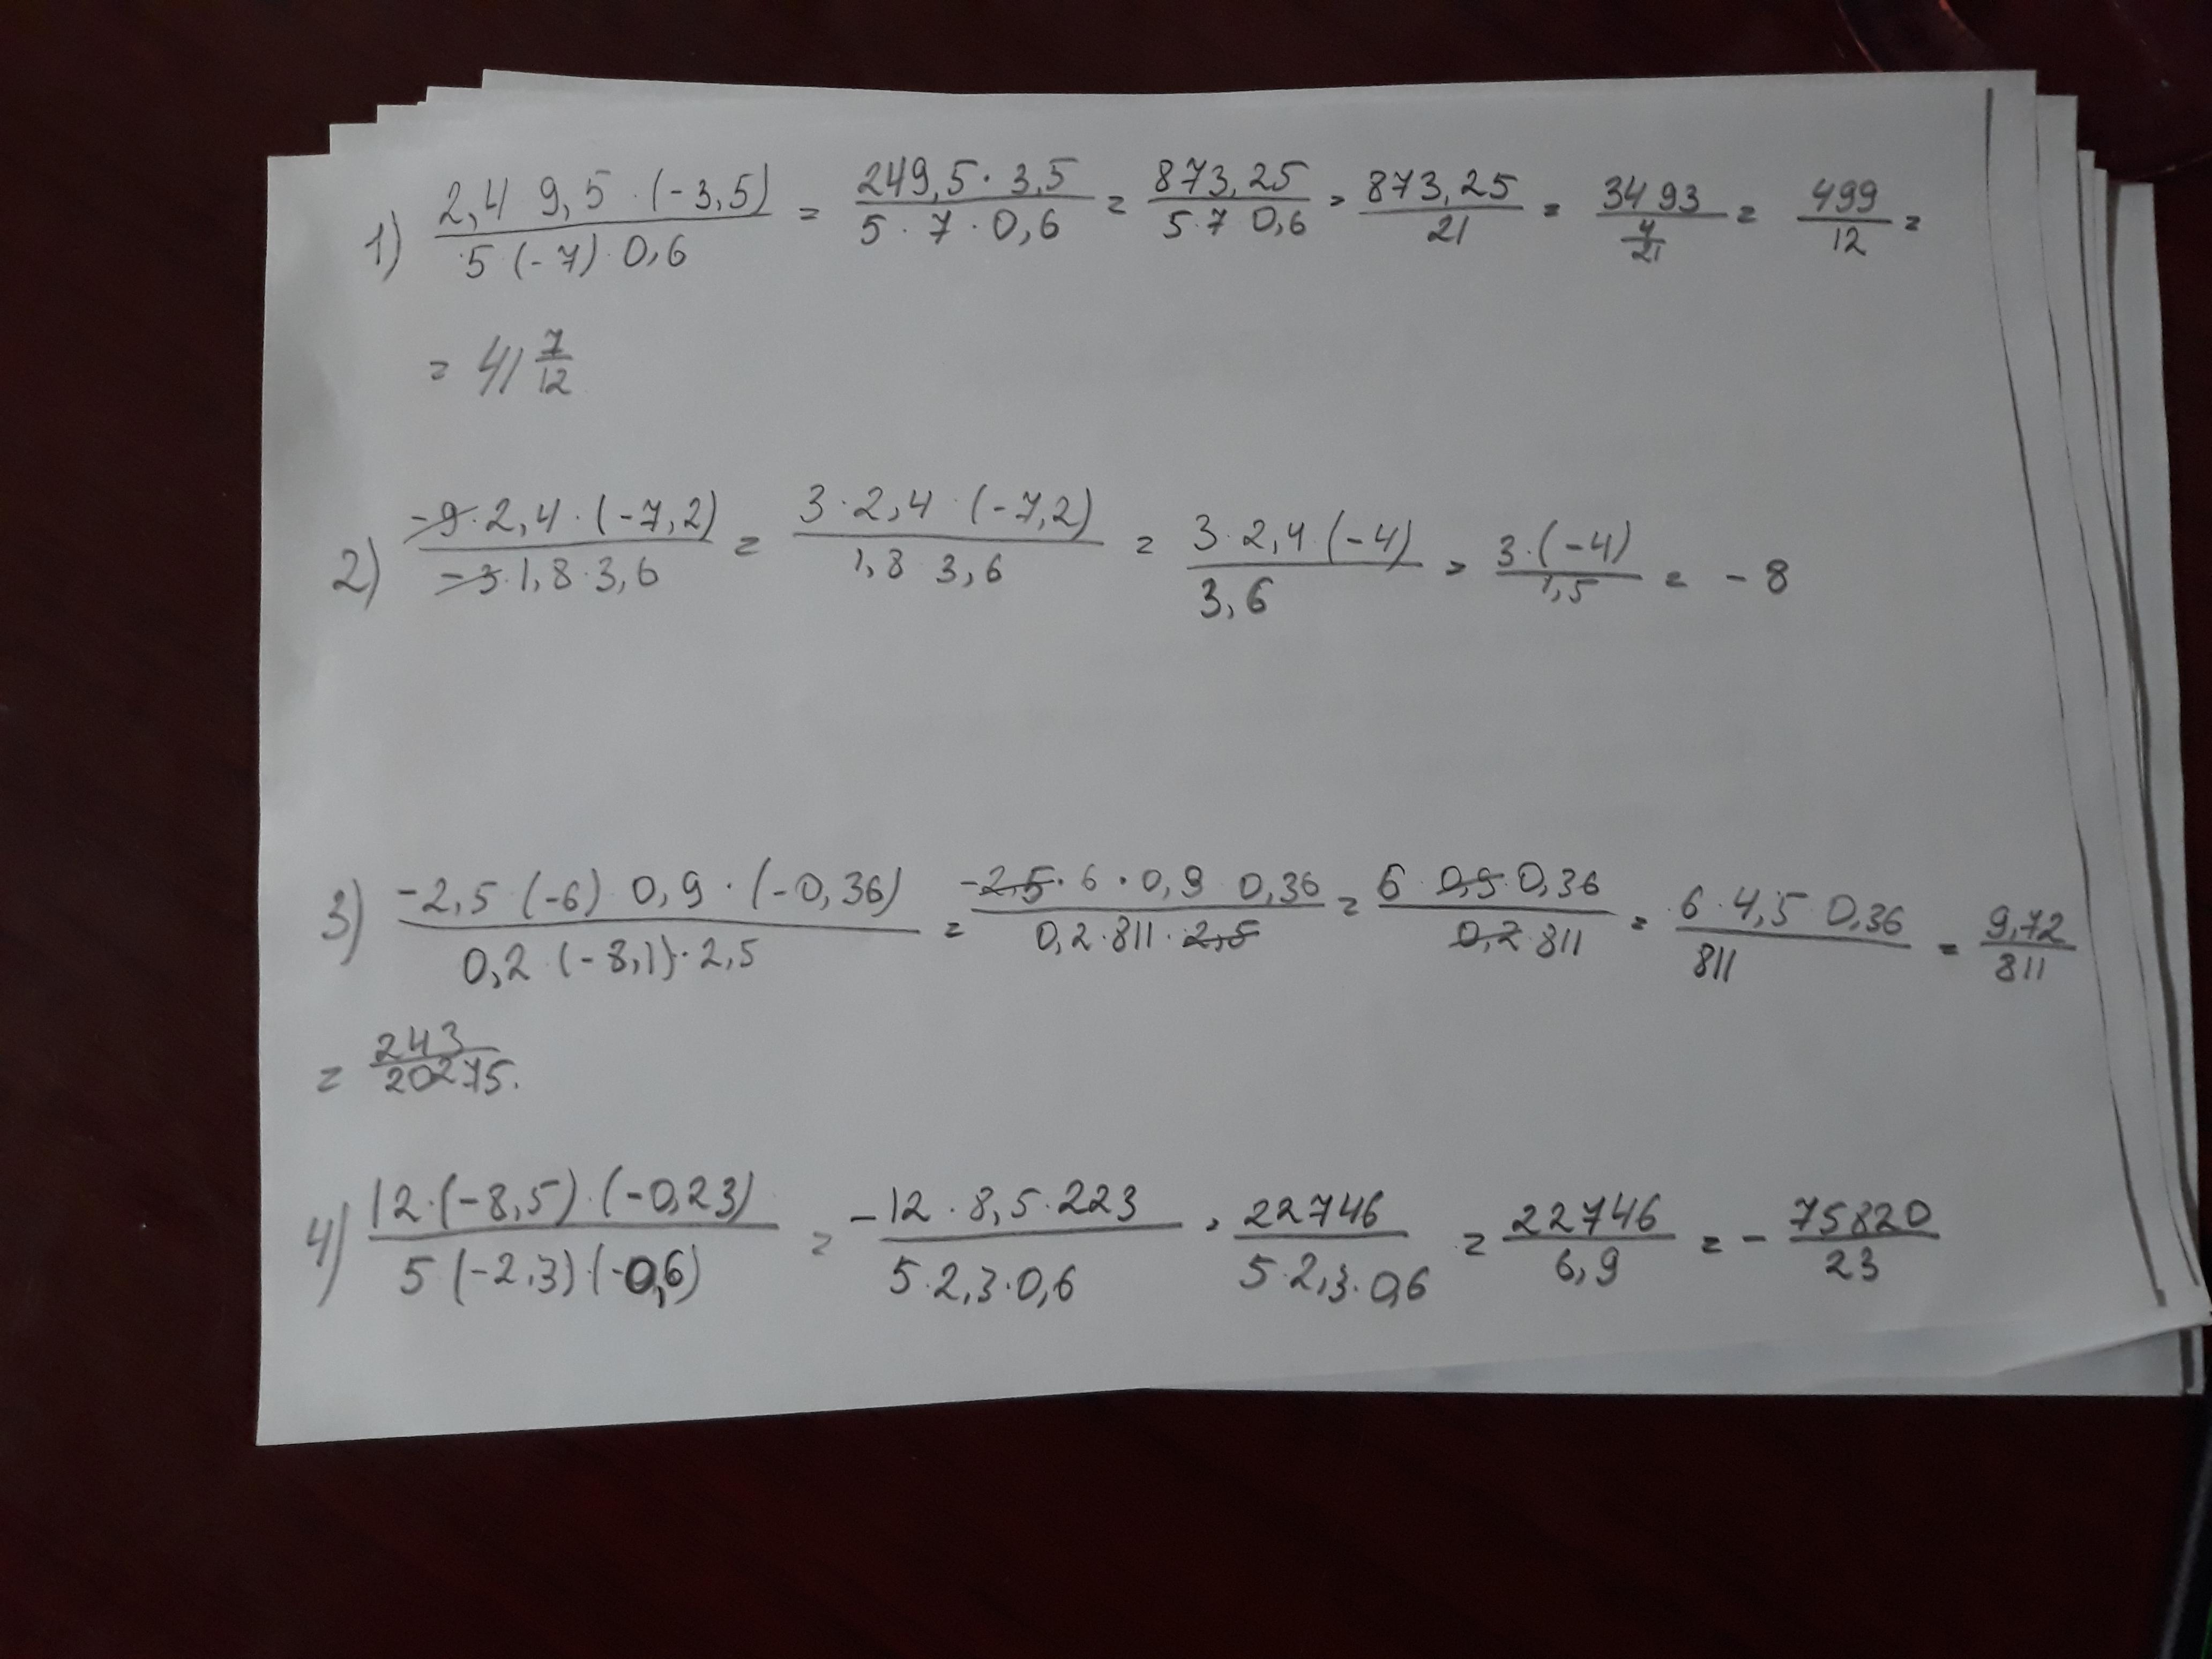 1) (2,4 9,5 · (-3,5)) / (5 (-7) · 0,6) = (249,5 · 3,5) / (5 · 7 · 0,6) = 873,25 / (5 · 7 0,6) = 873,25 / 21 = 3493 / (4 / 21) = 499 / 12 =
= 41 7/12
2) (-9 · 2,4 · (-7,2)) / (-3 · 1,8 · 3,6) = (3 · 2,4 · (-7,2)) / (1,8 3,6) = (3 · 2,4 (-4)) / 3,6 = (3 · (-4)) / 1,5 = - 8
3) (-2,5 · (-6) 0,9 · (-0,36)) / (0,2 · (-8,1) · 2,5) = (-2,5 · 6 · 0,9 0,36) / (0,2 · 811 · 2,5) = (6 0,9 0,36) / (0,2 · 811) = (6 · 4,5 0,36) / 811 = 9,72 / 811
= 243 / 20275.
4) (12 · (-8,5) · (-0,23)) / (5 (-2,3) · (-0,6)) = (-12 · 8,5 · 223) / (5 · 2,3 · 0,6) = 22746 / (5 · 2,3 · 0,6) = 22746 / 6,9 = - 75820 / 23